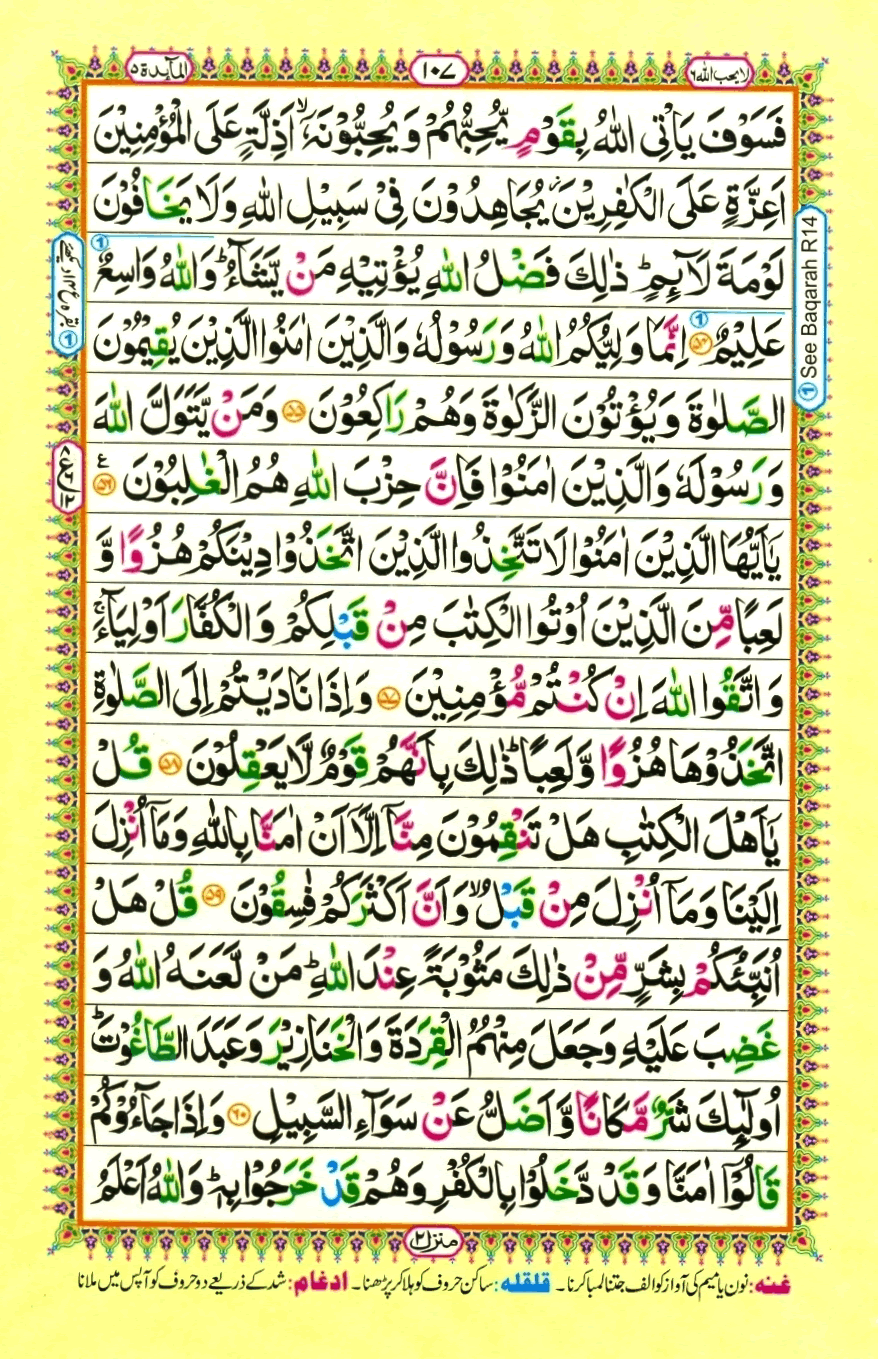 المآئدة ۵
۱۰۷
لا یحب اللہ ۶
فَسَوْفَ یَاْتِی اللّٰهُ بِقَوْمٍ یُّحِبُّهُمْ وَ یُحِبُّوْنَهٗۤ ۙ اَذِلَّةٍ عَلَی الْمُؤْمِنِیْنَ
اَعِزَّةٍ عَلَی الْكٰفِرِیْنَ ؗ یُجَاهِدُوْنَ فِیْ سَبِیْلِ اللّٰهِ وَ لَا یَخَافُوْنَ
لَوْمَةَ لَآىِٕمٍ ؕ ذٰلِكَ فَضْلُ اللّٰهِ یُؤْتِیْهِ مَنْ یَّشَآءُ ؕ وَ اللّٰهُ وَاسِعٌ
عَلِیْمٌ ۵۴ اِنَّمَا وَلِیُّكُمُ اللّٰهُ وَ رَسُوْلُهٗ وَ الَّذِیْنَ اٰمَنُوا الَّذِیْنَ یُقِیْمُوْنَ
الصَّلٰوةَ وَ یُؤْتُوْنَ الزَّكٰوةَ وَ هُمْ رَاكِعُوْنَ ۵۵ وَ مَنْ یَّتَوَلَّ اللّٰهَ
وَ رَسُوْلَهٗ وَ الَّذِیْنَ اٰمَنُوْا فَاِنَّ حِزْبَ اللّٰهِ هُمُ الْغٰلِبُوْنَ ۵۶ ع
یٰۤاَیُّهَا الَّذِیْنَ اٰمَنُوْا لَا تَتَّخِذُوا الَّذِیْنَ اتَّخَذُوْا دِیْنَكُمْ هُزُوًا وَّ
لَعِبًا مِّنَ الَّذِیْنَ اُوْتُوا الْكِتٰبَ مِنْ قَبْلِكُمْ وَ الْكُفَّارَ اَوْلِیَآءَ ۚ
وَ اتَّقُوا اللّٰهَ اِنْ كُنْتُمْ مُّؤْمِنِیْنَ ۵۷ وَ اِذَا نَادَیْتُمْ اِلَی الصَّلٰوةِ
اتَّخَذُوْهَا هُزُوًا وَّ لَعِبًا ؕ ذٰلِكَ بِاَنَّهُمْ قَوْمٌ لَّا یَعْقِلُوْنَ ۵۸ قُلْ
یٰۤاَهْلَ الْكِتٰبِ هَلْ تَنْقِمُوْنَ مِنَّاۤ اِلَّاۤ اَنْ اٰمَنَّا بِاللّٰهِ وَ مَاۤ اُنْزِلَ
اِلَیْنَا وَ مَاۤ اُنْزِلَ مِنْ قَبْلُ ۙ وَ اَنَّ اَكْثَرَكُمْ فٰسِقُوْنَ ۵۹ قُلْ هَلْ
اُنَبِّئُكُمْ بِشَرٍّ مِّنْ ذٰلِكَ مَثُوْبَةً عِنْدَ اللّٰهِ ؕ مَنْ لَّعَنَهُ اللّٰهُ وَ
غَضِبَ عَلَیْهِ وَ جَعَلَ مِنْهُمُ الْقِرَدَةَ وَ الْخَنَازِیْرَ وَ عَبَدَ الطَّاغُوْتَ ؕ
اُولٰٓىِٕكَ شَرٌّ مَّكَانًا وَّ اَضَلُّ عَنْ سَوَآءِ السَّبِیْلِ ۶۰ وَ اِذَا جَآءُوْكُمْ
قَالُوْۤا اٰمَنَّا وَ قَدْ دَّخَلُوْا بِالْكُفْرِ وَ هُمْ قَدْ خَرَجُوْا بِهٖ ؕ وَ اللّٰهُ اَعْلَمُ
① See Baqarah R14
منزل ۲
غنہ: نون یا میم کی آواز کو الف جتنا لمبا کرنا۔ قلقلہ: ساکن حروف کو ہلا کر پڑھنا۔ ادغام: شد کے ذریعے دو حروف کو آپس میں ملانا